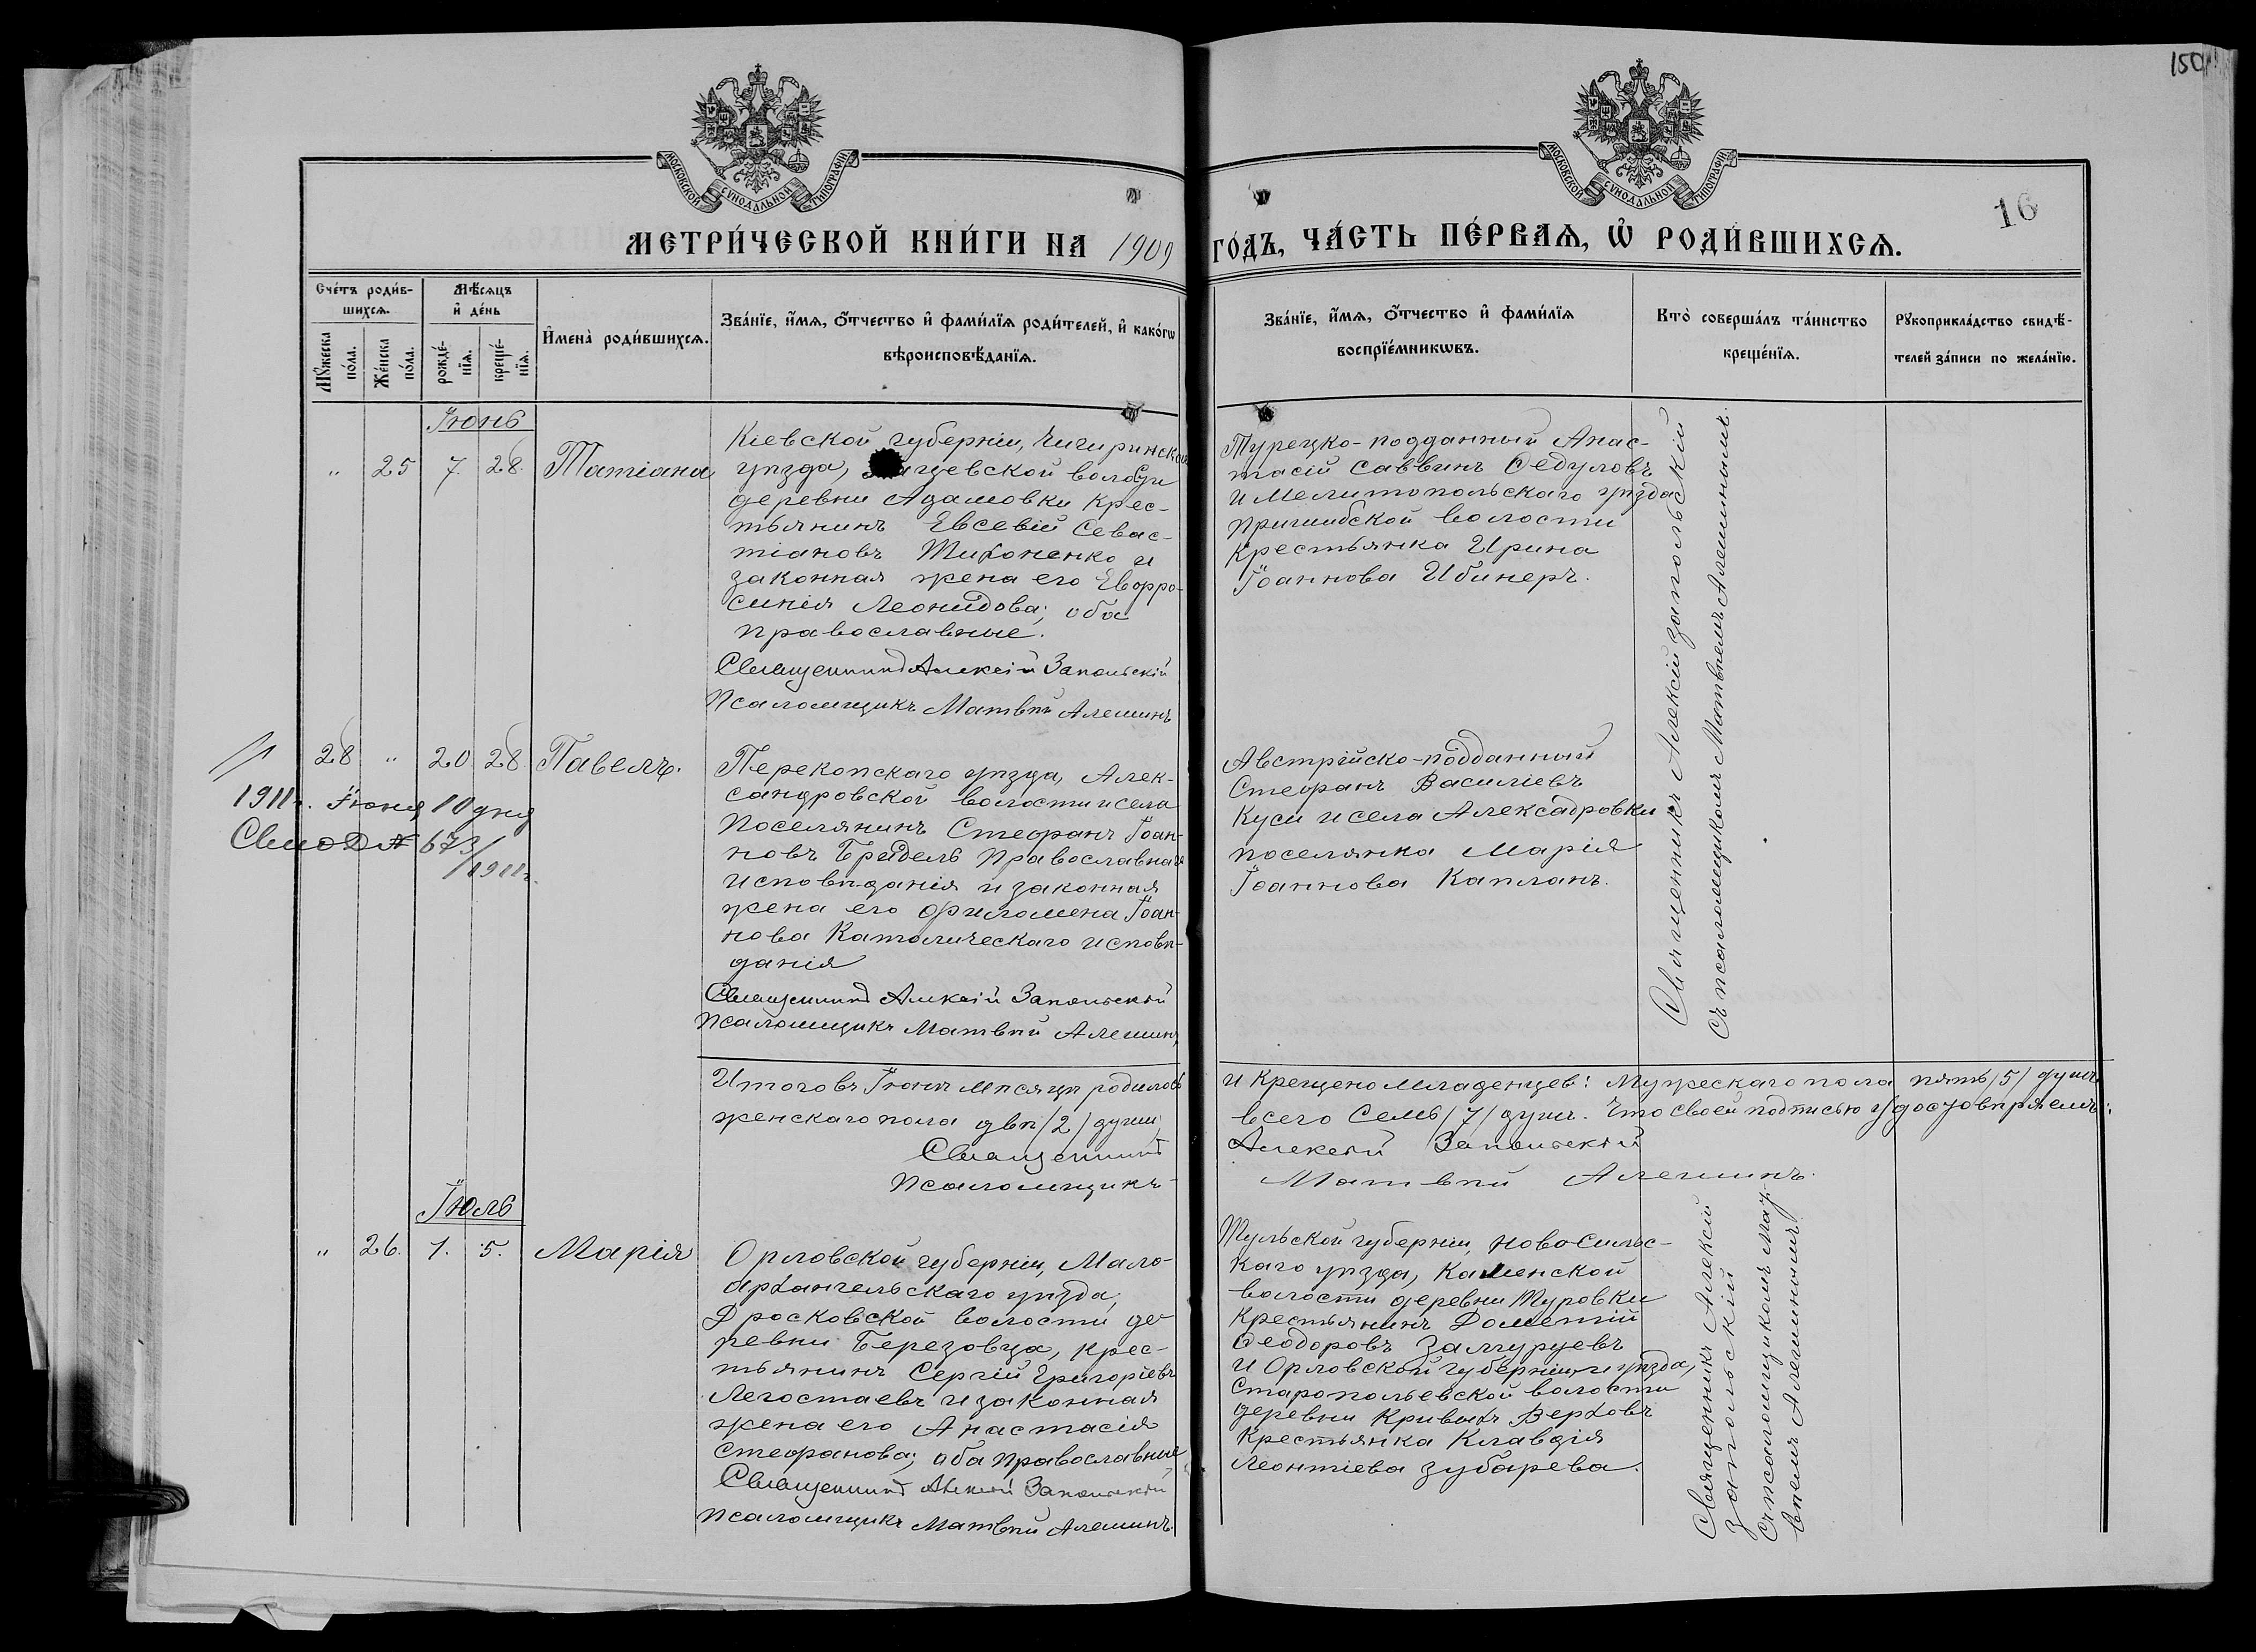 150
МОСКОВСКОЙ СУНОДАЛЬНОЙ ТИПОГРАФІИ
МОСКОВСКОЙ СУНОДАЛЬНОЙ ТИПОГРАФІИ
16
МЕТРИ́ЧЕСКОЙ КНИ́ГИ НА 1909 ГО́ДЪ, ЧА́СТЬ ПЕ́РВАѦ, Ѡ҆ РОДИ́ВШИХСѦ.
Сче́тъ роди́в-
шихсѧ.
Мꙋ́жеска по́ла.
Же́нска по́ла.
Мѣ́сѧцъ
и҆ де́нь
рожде́-
нїѧ.
креще́-
нїѧ.
И҆мена̀ роди́вшихсѧ.
Зва́нїе, и҆́мѧ, ѻ҆́тчество и҆ фами́лїѧ роди́телей, и҆ како́гѡ
вѣроисповѣ́данїѧ.
Зва́нїе, и҆́мѧ, ѻ҆́тчество и҆ фами́лїѧ
воспрїе́мникѡвъ.
Кто̀ соверша́лъ та́инство
креще́нїѧ.
Рꙋкоприкла́дство свидѣ́-
телей за́писи по жела́нїю.
Іюнь
" 25 7. 28. Татіана
Кіевской губерніи, Чигиринской
уѣзда, волости
деревни Адамовки крес-
тьянинъ Евсевій Севас-
тіановъ Тихоненко и
законная жена его Евфро-
синія Леонидова; оба
православные.
Священникъ Алексій Запольскій
Псаломщикъ Матвѣй Алешинъ
Турецко-подданный Анас-
тасій Саввинъ Федуловъ
и Мелитопольскаго уѣзда
Пришибской волости
крестьянка Ирина
Іоаннова
Священникъ Алексій Запольскій
съ псаломщикомъ Матвѣемъ Алешинымъ.
28 " 20 28. Павелъ.
1911г. Іюня 10 дня
№ 673/1911г.
Перекопскаго уѣзда, Алек-
сандровской волости и села
поселянинъ Стефанъ Іоан-
новъ Бридель православнаго
исповѣданія и законная
жена его Филомена Іоан-
нова Католическаго исповѣ-
данія
Священникъ Алексій Запольскій
Псаломщикъ Матвѣй Алешинъ
Австрійско-подданный
Стефанъ Василіевъ
Куси и села Алексадровки
поселянка Марія
Іоаннова Капланъ.
Итого въ Іюнѣ мѣсяцѣ родилось и крещено младенцев: мужескаго пола пять /5/ душъ
женскаго пола двѣ /2/ души, всего семь /7/ душъ. Что своей подписью удостовѣряемъ:
Священникъ Алексій Запольскій
Псаломщикъ Матвѣй Алешинъ.
Іюль
" 26. 1. 5. Марія
Орловской губерніи, Мало-
архангельскаго уѣзда,
Дросковской волости де-
ревни Березовца, крес-
тьянинъ Сергій Григоріевъ
Легостаевъ и законная
жена его Анастасія
Стефанова; оба православные
Священникъ Алексій Запольскій
Псаломщикъ Матвѣй Алешинъ.
Тульской губерніи, Новосильс-
каго уѣзда, Каменской
волости деревни Туровки
крестьянинъ Дометій
Феодоровъ
и Орловской губерніи и уѣзда,
Старопольевской волости
деревни Кривыхъ Верховъ
крестьянка Клавдія
Леонтіева Зубарева.
Священникъ Алексій
Запольскій
съ псаломщикомъ Мат-
вѣемъ Алешинымъ